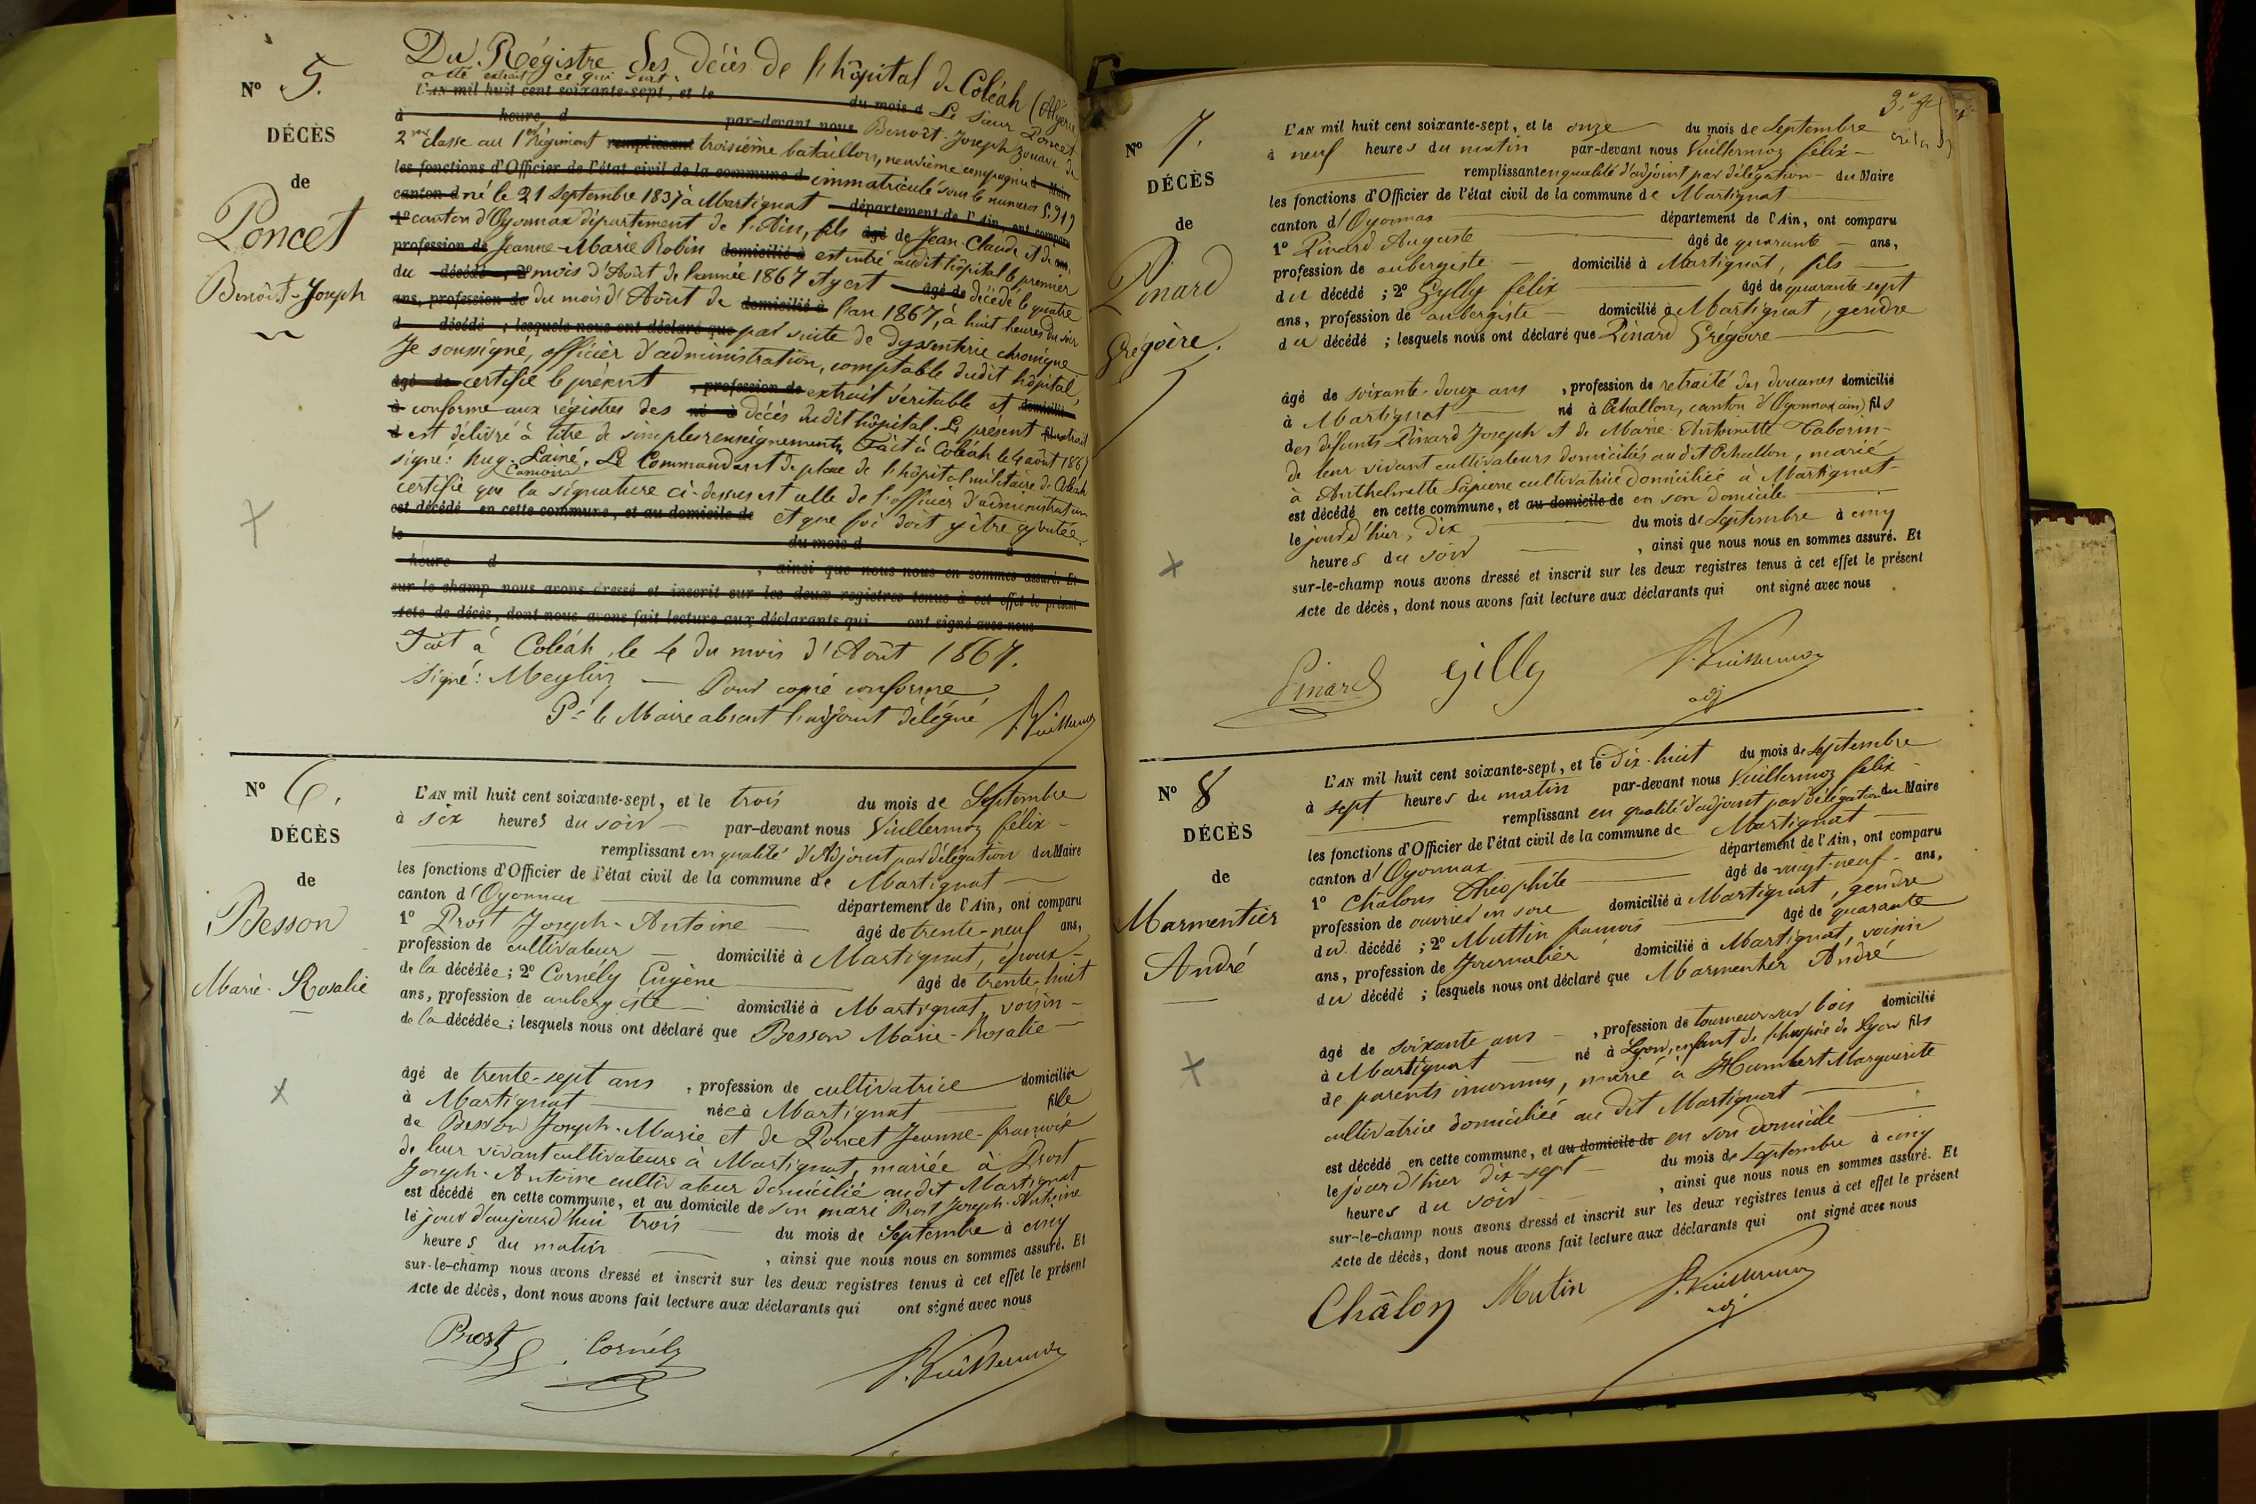 Nº 5.
DÉCÈS
de
Poncet
Benoît-Joseph
Du Régistre des décès de l'hôpital de Coléah (Algérie
a été extrait ce qui suit.
L'AN mil huit cent soixante-sept, et le du mois d Le sieur Poncet
à heure d par-devant nous Benoît-Joseph zouave de
2me classe au 1er Régiment remplissant troisième bataillon, neuvième compagnie d Maire
les fonctions d'Officier de l'état civil de la commune d immatriculé sous le numéro
canton d né le 21 septembre 1837 à Martignat département de l'Ain, ont comparu
1º canton d'Oyonnax département de l'Ain, fils âgé de Jean-Claude et de ans,
profession de Jeanne-Marie Robin domicilié à est entré audit hôpital le premier
du décédé, 2º mois d'Août de l'année 1867 et y est âgé de décédé le quatre
ans, profession de du mois d'Août de domicilié à l'an 1867, à huit heures du soir
d décédé ; lesquels nous ont déclaré que par suite de dyssenterie chronique
Je soussigné, officier d'administration, comptable dudit hôpital,
âgé de certifie le présent , profession de extrait véritable et domicilié
à conforme aux régistres des né à décès dudit hôpital. Le présent extrait
d est délivré à titre de simples renseignements Fait à Coléah le 4 août 1867
signé : Lainé. Le Commandant de place de l'hôpital militaire de Coléah
certifie que la signature ci-dessus est celle de l'officier d'administration
est décédé en cette commune, et au domicile de et que foi doit y être ajoutée.
le du mois d à
heure d , ainsi que nous nous en sommes assuré. Et
sur-le-champ nous avons dressé et inscrit sur les deux registres tenus à cet effet le présent
Acte de décès, dont nous avons fait lecture aux déclarants qui ont signé avec nous
Fait à Coléah, le 4 du mois d'Août 1867.
Signé : Meylin — Pour copie conforme
Pr le Maire absent l'adjoint délégué F. Vuillermoz
Nº 6.
DÉCÈS
de
Besson
Marie-Rosalie
L'AN mil huit cent soixante-sept, et le trois du mois de Septembre
à six heures du soir par-devant nous Vuillermoz félix
remplissant en qualité d'Adjoint par délégation du Maire
les fonctions d'Officier de l'état civil de la commune de Martignat
canton d'Oyonnax département de l'Ain, ont comparu
1º Prost Joseph-Antoine âgé de trente-neuf ans,
profession de cultivateur domicilié à Martignat, époux
de la décédée ; 2º Cornély Eugène âgé de trente-huit
ans, profession de aubergiste domicilié à Martignat, voisin
de la décédée ; lesquels nous ont déclaré que Besson Marie-Rosalie
âgé de trente-sept ans , profession de cultivatrice domiciliée
à Martignat née à Martignat fille
de Besson Joseph-Marie et de Poncet Jeanne-françoise
de leur vivant cultivateurs à Martignat, mariée à Prost
Joseph-Antoine cultivateur domicilié audit Martignat
est décédé en cette commune, et au domicile de son mari Prost Joseph-Antoine
le jour d'aujourd'hui trois du mois de Septembre à cinq
heures du matin , ainsi que nous nous en sommes assuré. Et
sur-le-champ nous avons dressé et inscrit sur les deux registres tenus à cet effet le présent
Acte de décès, dont nous avons fait lecture aux déclarants qui ont signé avec nous
Prost Cornély F. Vuillermoz
Nº 7.
DÉCÈS
de
Pinard
Grégoire.
L'AN mil huit cent soixante-sept, et le onze du mois de Septembre
à neuf heures du matin par-devant nous Vuillermoz félix
remplissant en qualité d'adjoint par délégation du Maire
les fonctions d'Officier de l'état civil de la commune de Martignat
canton d'Oyonnax département de l'Ain, ont comparu
1º Pinard Auguste âgé de quarante ans,
profession de aubergiste domicilié à Martignat, fils
du décédé ; 2º Gylly félix âgé de quarante-sept
ans, profession de aubergiste domicilié à Martignat, gendre
du décédé ; lesquels nous ont déclaré que Pinard Grégoire
âgé de soixante-douze ans , profession de retraité des douanes domicilié
à Martignat né à Echallon, canton d'Oyonnax (ain) fils
des défunts Pinard Joseph et de Marie-Antoinette Taborin
de leur vivant cultivateurs domiciliés audit Echallon, marié
à Anthelmette Lapierre cultivatrice domiciliée à Martignat
est décédé en cette commune, et au domicile de en son domicile
le jour d'hier, dix du mois de Septembre à cinq
heures du soir , ainsi que nous nous en sommes assuré. Et
sur-le-champ nous avons dressé et inscrit sur les deux registres tenus à cet effet le présent
Acte de décès, dont nous avons fait lecture aux déclarants qui ont signé avec nous
Pinard Gilly F. Vuillermoz
adj
Nº 8
DÉCÈS
de
Marmentier
André
L'AN mil huit cent soixante-sept, et le dix-huit du mois de Septembre
à sept heures du matin par-devant nous Vuillermoz felix
remplissant en qualité d'adjoint par délégation du Maire
les fonctions d'Officier de l'état civil de la commune de Martignat
canton d'Oyonnax département de l'Ain, ont comparu
1º Châlons Théophile âgé de vingt-neuf ans,
profession de ouvrier en soie domicilié à Martignat, gendre
du décédé ; 2º Muttin françois âgé de quarante
ans, profession de Journalier domicilié à Martignat, voisin
du décédé ; lesquels nous ont déclaré que Marmentier André
âgé de soixante ans , profession de tourneur sur bois domicilié
à Martignat né à Lyon, enfant de l'hospice de Lyon fils
de parents inconnus, marié à Humbert Marguerite
cultivatrice domiciliée au dit Martignat
est décédé en cette commune, et au domicile de en son domicile
le jour d'hier dix-sept du mois de Septembre à cinq
heures du soir , ainsi que nous nous en sommes assuré. Et
sur-le-champ nous avons dressé et inscrit sur les deux registres tenus à cet effet le présent
Acte de décès, dont nous avons fait lecture aux déclarants qui ont signé avec nous
Châlon Mutin F. Vuillermoz
adj